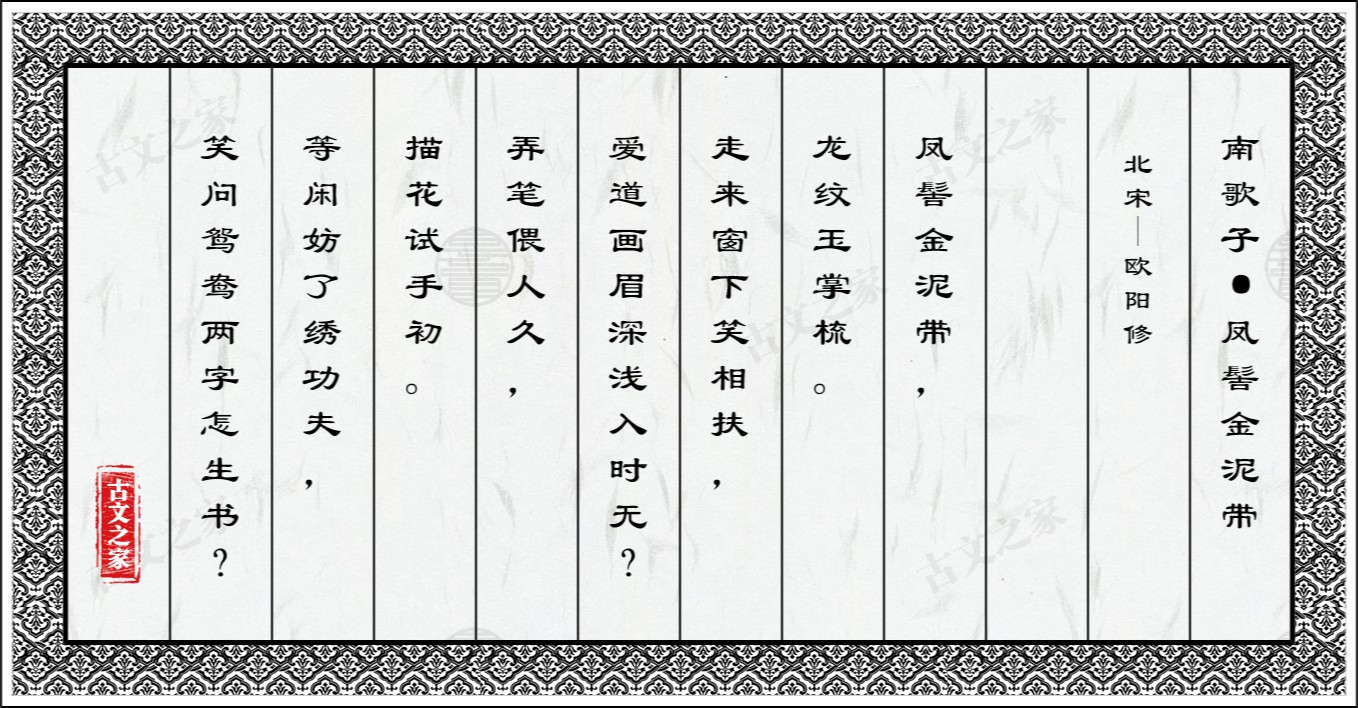 南歌子●凤髻金泥带
北宋—欧阳修
凤髻金泥带，
龙纹玉掌梳。
走来窗下笑相扶，
爱道画眉深浅入时无？
弄笔偎人久，
描花试手初。
等闲妨了绣功夫，
笑问鸳鸯两字怎生书？
古文之家
古文之家
古文之家
古文之家
古文之家
古文之家